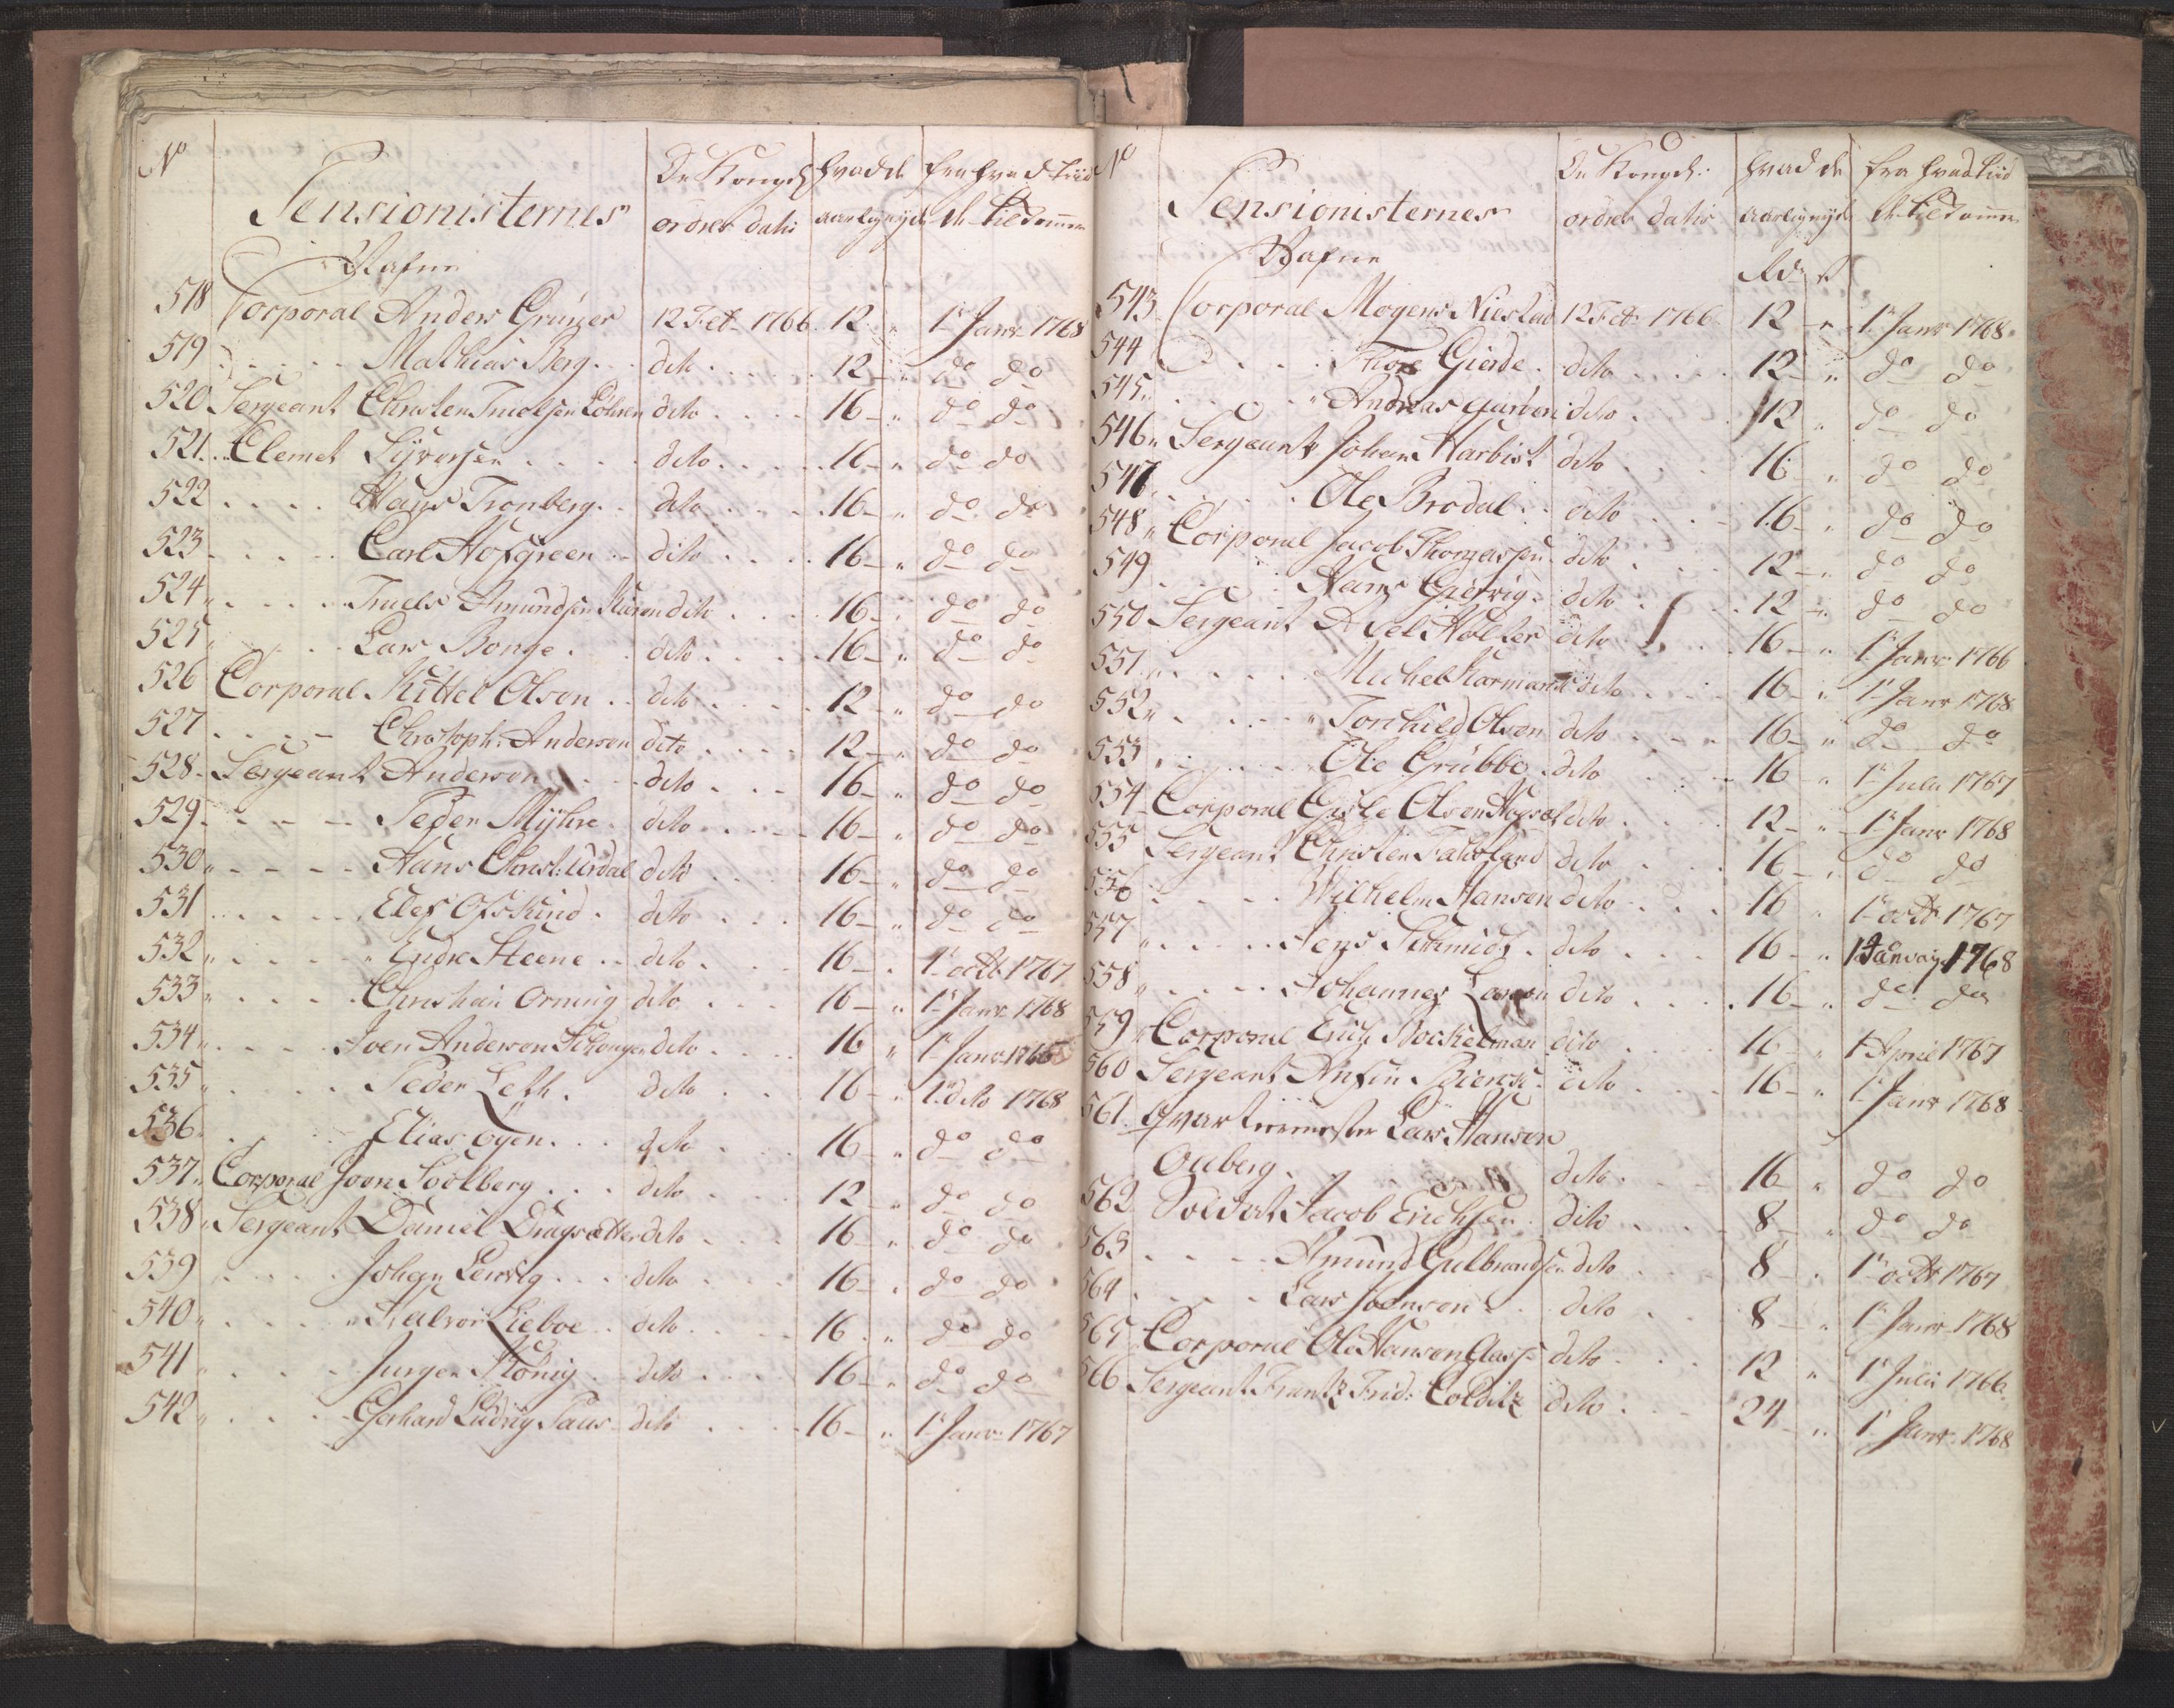 No
Pensionisternes
Nafne
De Kongel:
ordres datis
hvad de
aarlig nyde
fra hvad tiid
de tilkommer
518 Corporal Anders Grüner 12 Feb 1766 12 " 1te Janr 1768
519 . . . . Mathias Berg . . dito . . . . 12 " do do
520 Sergeant Christen Truelsen dito . . . . 16 " do do
521 " Clemet Syversen . . . . dito . . . . 16 " do do
522 . . . . Hans Tronberg . . dito . . . . 16 " do do
523 . . . . Carl Hofgreen . . dito . . . . 16 " do do
524 " . . . . Truels Amundsen dito . . . 16 " do do
525 " . . . . Lars Bonge . . dito . . . . 16 " do do
526 Corporal Kittel Olsen . . dito . . . . 12 " do do
527 . . . . Christoph: Andersen dito . . . . 12 " do do
528 Sergeant Anderson . . . dito . . . 16 " do do
529 . . . . Peder Myhre . dito . . . . 16 " do do
530 " . . . . Hans Christ: Urdal dito . . . 16 " do do
531 . . . . Elef . dito . . . 16 " do do
532 " . . . . " Endre Steene . . dito . . . 16 " 1te octbr 1767
533 " . . . . Christian Orning dito . . . 16 " 1te Janr 1768
534 " . . . . Joen Anderson dito . . . 16 " 1te Janr 1766
535 " . . . . Peder Leth . dito . . . 16 " 1te dito 1768
536 " . . . . Elias Ogen . . . dito . . . 16 " do do
537 " Corporal Joen Soelberg . . . dito . . . 12 " do do
538 " Sergeant Daniel Dragsætter dito . . . 16 " do do
539 . . . . Johan Ledvig . . . dito . . . 16 " do do
540 " . . . . " Halvor Lieboe . . dito . . . 16 " do do
541 " . . . . Jurgen König . . dito . . . 16 " do do
542 " . . . . Gerhard Ludvig Paus dito . . . 16 " 1te Janr 1767
No
Pensionisternes
Nafne
De Kongel:
ordres datis
hvad de
aarlig nyde
Rdr
fra hvad tiid
de tilkommer
543 Corporal Mogens Niestad 12 Feb 1766 12 " 1te Janr 1768
544 . . . . Thore Gierde . dito . . . . 12 " do do
545 " . . . . " Andreas dito . 12 " do do
546 " Sergeant Johan Harbist dito . . 16 " do do
547 . . . . . Ole Brodal . . dito . . . 16 " do do
548 " Corporal Jacob Thomassen dito . . . 12 " do do
549 . . . . Hans Giervig . dito . . . 12 " do do
550 Sergeant Axel Holter dito . . . 16 " 1te Janr 1766
551 " . . . . Michel Harmand dito . . . 16 " 1te Janr 1768
552 " . . . . " Torchild Olsen dito . . . 16 " do do
553 . . . . . Ole Grübbe . dito . . . 16 " 1te Julii 1767
554 Corporal Olsen dito . . . 12 " 1te Janr 1768
555 Sergeant Christen dito . . . 16 " do do
556 . . . . Wilhelm Hansen dito . . . 16 " 1te octbr 1767
557 " . . . . Jens Schmidt . dito . . . 16 " 1 Januarij 1768
558 " . . . . Johannes Larsen dito . . . 16 " do do
559 " Corporal Erich Bockelman dito . . . 16 " 1te April 1767
560 Sergeant Anfin dito . . . 16 " 1te Janr 1768
561 Qvarteermester Lars Hansen
Ouberg . dito . . . 16 " do do
562 Soldat Jacob Erichsen . dito . . . 8 " do do
563 . . . . Amund Gulbrandsen dito . . . 8 " 1te octbr 1767
564 . . . . Lars Joensen . . dito . . . 8 " 1te Janr 1768
565 Corporal Ole Hansen dito . . . 12 " 1te Julii 1766
566 Sergeant Frantz Frid: Colditz dito . . . 24 " 1te Janr 1768